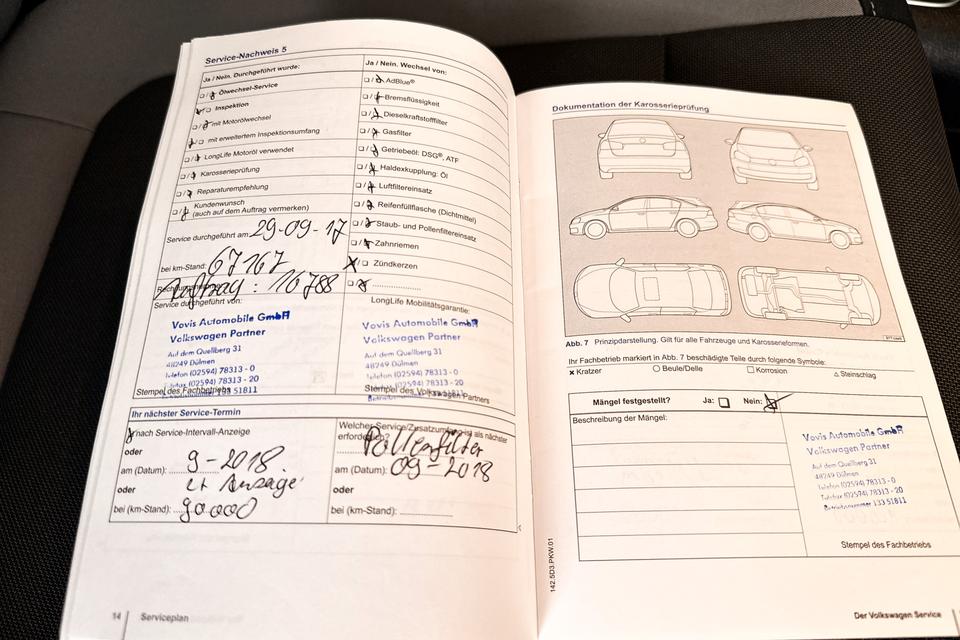 Service-Nachweis 5
Ja / Nein. Durchgeführt wurde:
❏ / ❏ Ölwechsel-Service
❏ Inspektion
❏ / ❏ mit Motorölwechsel
❏ mit erweitertem Inspektionsumfang
❏ / ❏ LongLife Motoröl verwendet
❏ / ❏ Karosserieprüfung
❏ / ❏ Reparaturempfehlung
❏ / ❏ Kundenwunsch
(auch auf dem Auftrag vermerken)
Service durchgeführt am: 29-09-17
bei km-Stand: 67167
Auftrag: 16788
Service durchgeführt von:
Vovis Automobile GmbH
Volkswagen Partner
Auf dem Quellberg 31
48249 Dülmen
Telefon (02594) 78313 - 0
Telefax (02594) 78313 - 20
133 51811
Stempel des Fachbetriebs
Ja / Nein. Wechsel von:
❏ / ❏ AdBlue®
❏ / ❏ Bremsflüssigkeit
❏ / ❏ Dieselkraftstofffilter
❏ / ❏ Gasfilter
❏ / ❏ Getriebeöl: DSG®, ATF
❏ / ❏ Haldexkupplung: Öl
❏ / ❏ Luftfiltereinsatz
❏ / ❏ Reifenfüllflasche (Dichtmittel)
❏ / ❏ Staub- und Pollenfiltereinsatz
❏ / ❏ Zahnriemen
X / ❏ Zündkerzen
❏ / ❏ ....................
LongLife Mobilitätsgarantie:
Vovis Automobile GmbH
Volkswagen Partner
Auf dem Quellberg 31
48249 Dülmen
Telefon (02594) 78313 - 0
Telefax (02594) 78313 - 20
Stempel des Volkswagen Partners
Ihr nächster Service-Termin
nach Service-Intervall-Anzeige
oder
am (Datum): 9-2018.
oder
bei (km-Stand): 90000
Welcher Service/Zusatzumfang ist als nächster
erforderlich?
Pollenfilter
am (Datum): 09-2018
oder
bei (km-Stand): ....................
14 Serviceplan
Dokumentation der Karosserieprüfung
Abb. 7 Prinzipdarstellung. Gilt für alle Fahrzeuge und Karosserieformen.
Ihr Fachbetrieb markiert in Abb. 7 beschädigte Teile durch folgende Symbole:
x Kratzer ○ Beule/Delle □ Korrosion △ Steinschlag
Mängel festgestellt? Ja: ❏ Nein:
Beschreibung der Mängel:
Vovis Automobile GmbH
Volkswagen Partner
Auf dem Quellberg 31
48249 Dülmen
Telefon (02594) 78313 - 0
Telefax (02594) 78313 - 20
Betriebsnummer 133 51811
Stempel des Fachbetriebs
142.5D3.PKW.01
Der Volkswagen Service